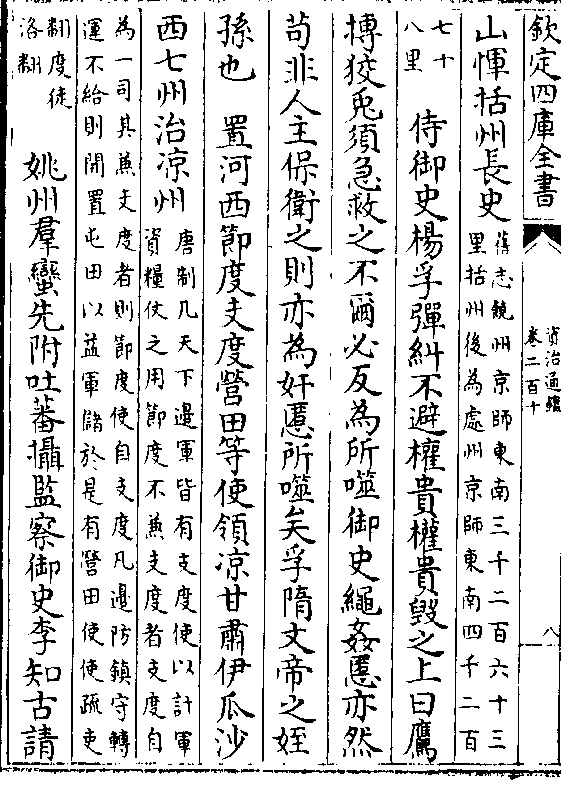 欽定四庫全書
資治通鑑
卷二百十
八
山惲括州長史
舊志饒州京師東南三千二百六十三
里括州後為處州京師東南四千二百
七十
八里
侍御史楊孚彈糾不避權貴權貴毀之上曰鷹
搏狡兎須急救之不爾必反為所噬御史繩姦慝亦然
苟非人主保衛之則亦為奸慝所噬矣孚隋文帝之姪
孫也 置河西節度支度營田等使領涼甘肅伊瓜沙
西七州治涼州
唐制凡天下邊軍皆有支度使以計軍
資糧仗之用節度不兼支度者支度自
為一司其兼支度者則節度使自支度凡邊防鎮守轉
運不給則開置屯田以益軍儲於是有營田使使疏吏
翻度徒
洛翻
姚州羣蠻先附吐蕃攝監察御史李知古請